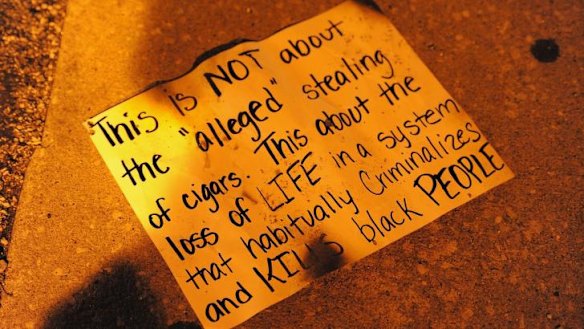 This is NOT about
the "alleged" stealing
of cigars. This about the
loss of LIFE in a system
that habitually Criminalizes
and KILLS black PEOPLE